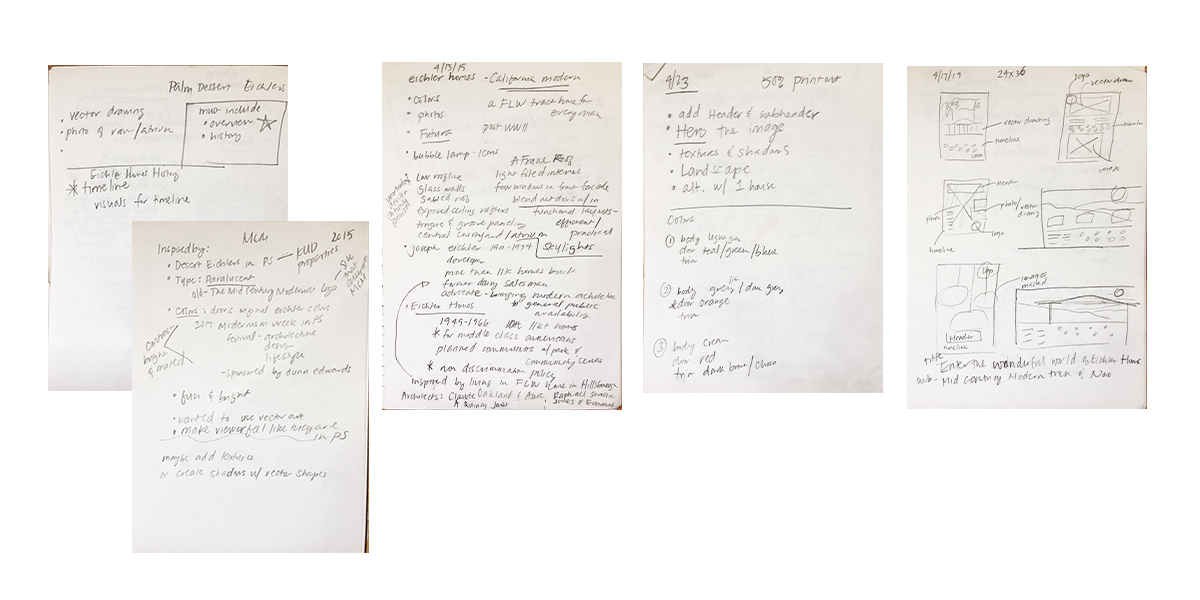 Palm Dessert Eichlers
• vector drawing
• photo of
must include
• overview
• history
Eichler Homes History
* timeline
visuals for timeline
MCM
2015
Inspired by:
• Desert Eichlers in PS — KUD properties
• Type: Paralucent
old - The Mid Century Modernist Logo
• Colors: doors original eichler colors
2017 Modernism week in PS
- architecture
design
lifestyle
- sponsored by dunn edwards
bright
& muted
• fun & bright
• wanted to use vector art
• make viewer feel like they are
in PS
maybe add textures
or create shadows w/ vector shapes
4/15/19
eichler homes - California modern
• Colors
• photos
• Futura
• bubble lamp - icons
a FLW tract home for
everyman
post WWII
A Frame Roof
Low roofline
light filled interiors
Glass walls
few windows in front facade
Gabled roof
blend outdoors w/ in
exposed ceiling rafters
functional layouts -
efficient/
practical
tongue & groove paneling
central courtyard/atrium
skylights
• Joseph eichler 1901-1974
developer
more than 11k homes built
former dairy salesman
advocate - bringing modern architecture
to general public
• Eichler Homes
1949-1966
* for middle class americans
planned communities w/ parks &
community centers
* non discrimination policy
inspired by living in FLW home in Hillsborough
Architects:
A Quincy Jones
Jones & Emmons
4/23
50% printout
• add Header & subheader
• Hero the image
• textures & shadows
• Landscape
• alt. w/ 1 house
Colors
① body
door teal/green/blue
trim
② body
door orange
trim
③ body cream
door red
trim
4/17/19
24x36
logo
vector drawing
vector drawing
timeline
timeline
image
Header
photo
photo/
vector
drawing
logo
timeline
Logo
images
masked
Header
timeline
title - Enter the wonderful world of Eichler Homes
sub - Mid Century Modern then & Now